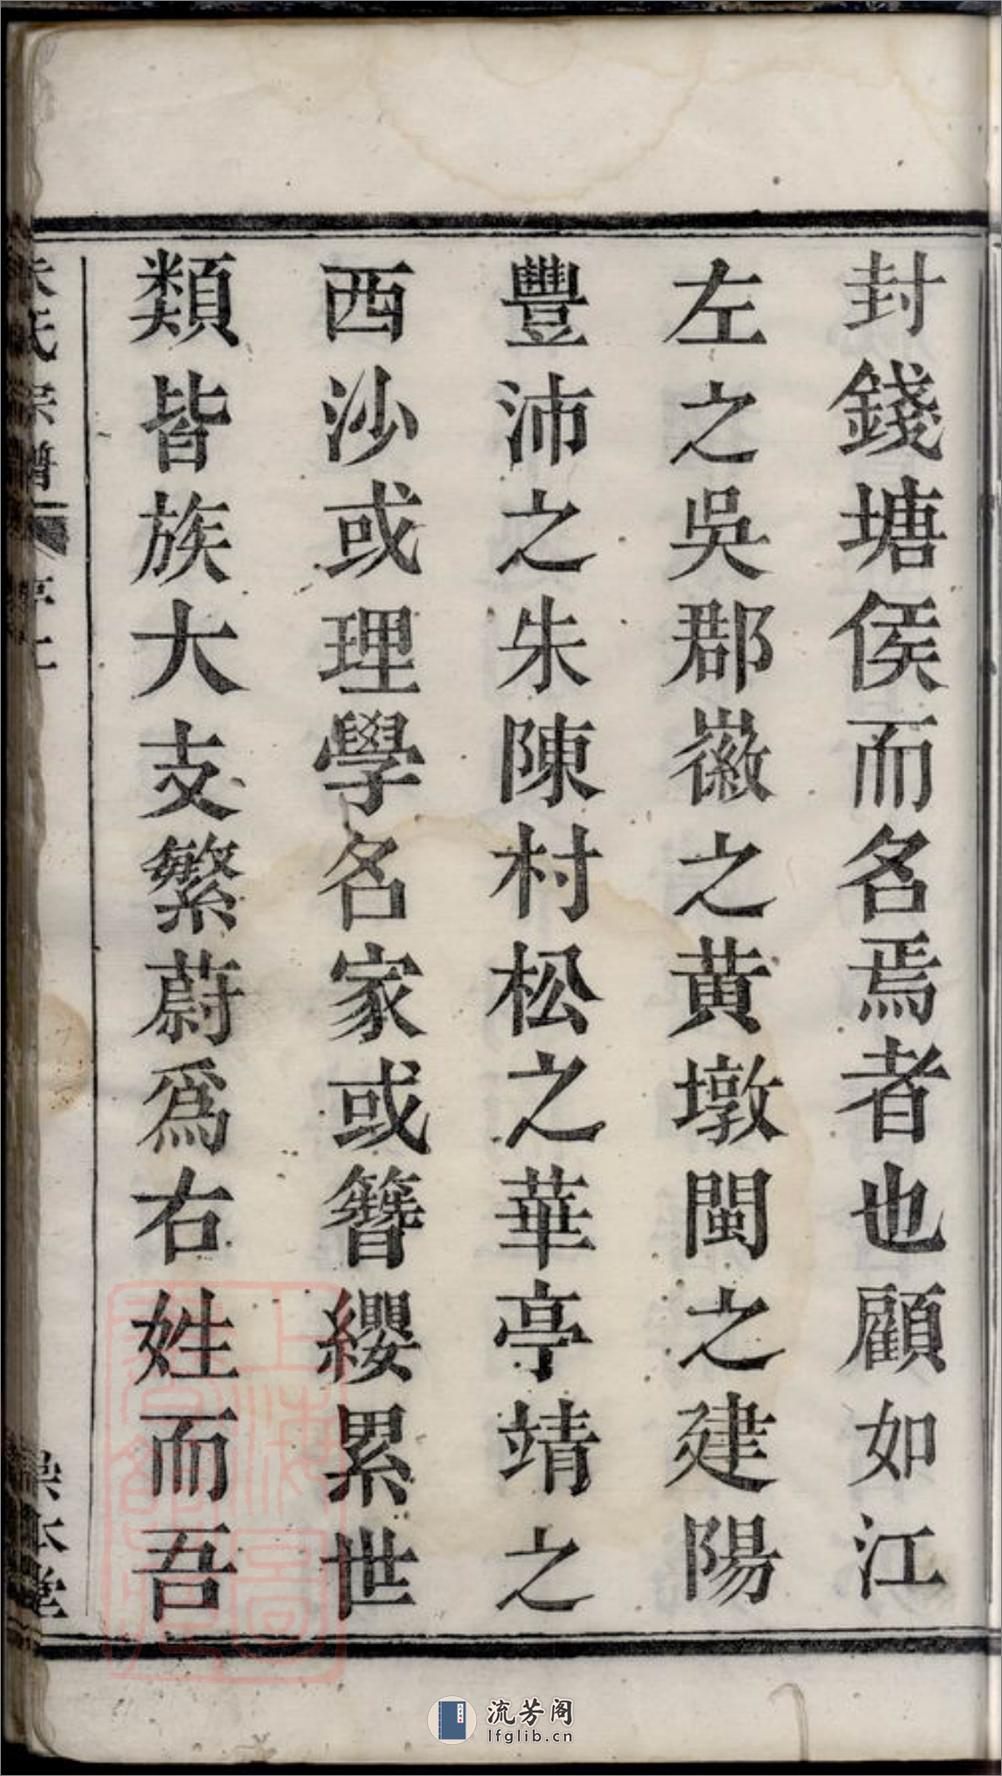 封錢塘侯而名焉者也顧如江
左之吳郡徽之黃墩閩之建陽
豐沛之朱陳村松之華亭靖之
西沙或理學名家或簪纓累世
類皆族大支繁蔚爲右姓而吾
氏宗譜
序
本堂
上海圖
流芳阁
lfglib.cn